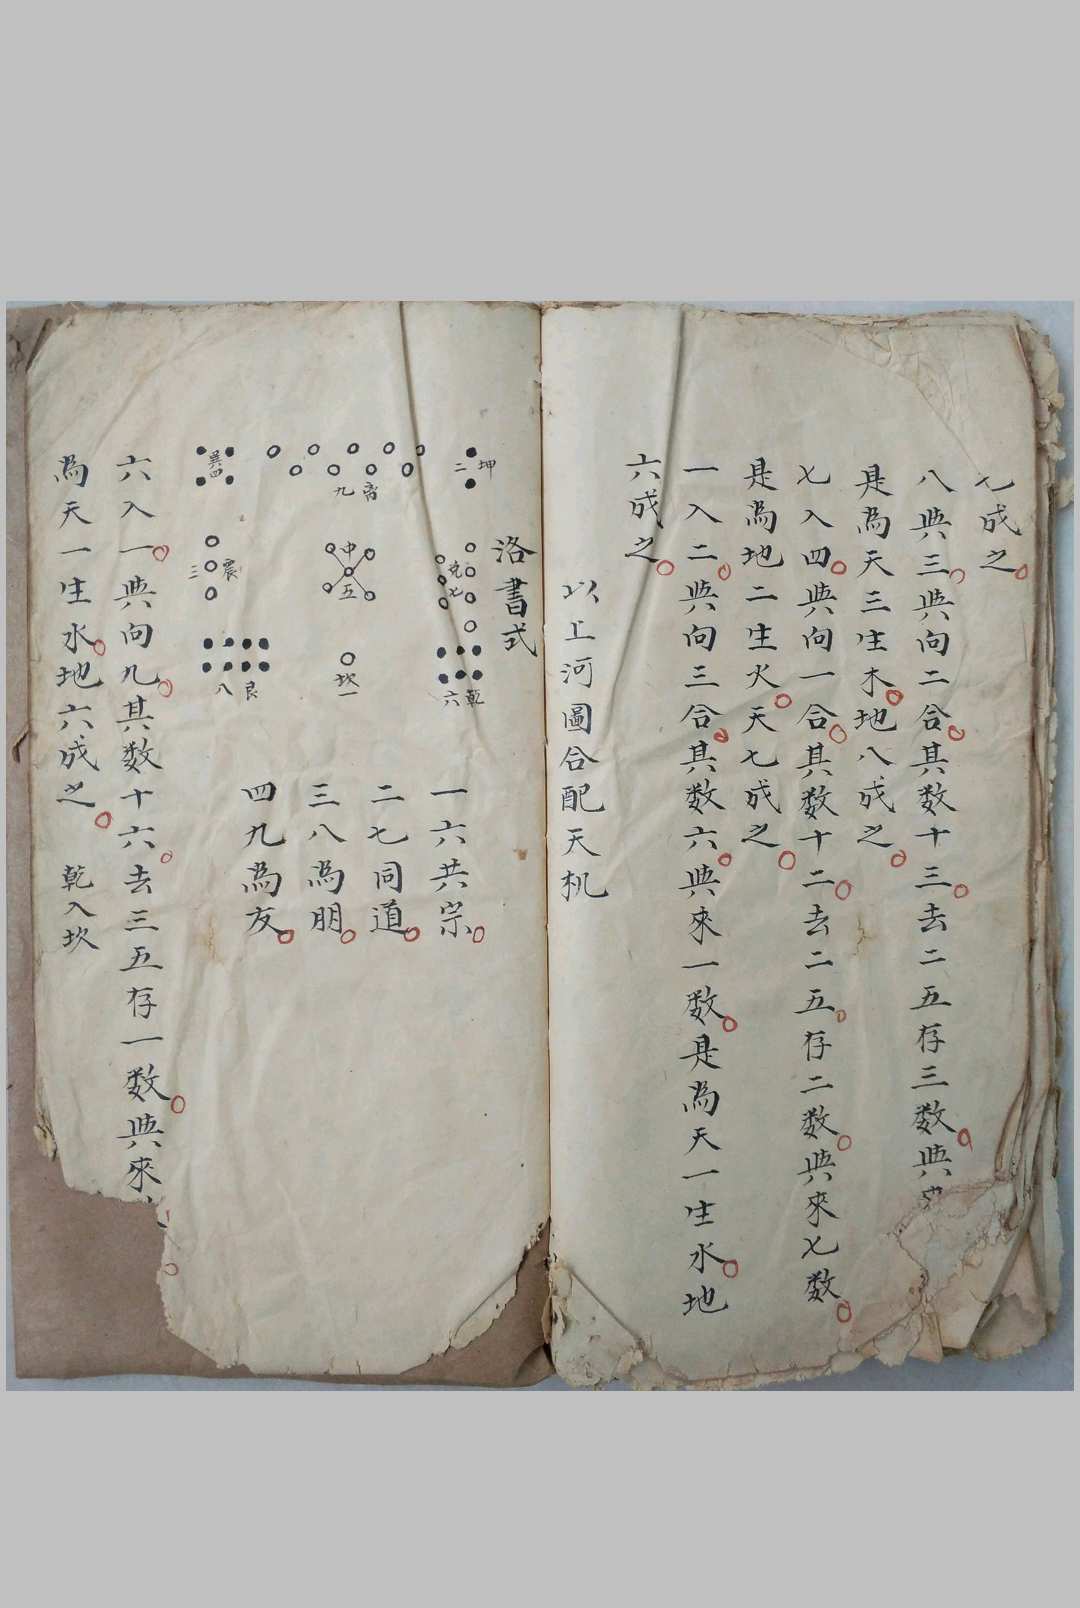 七成之
八與三與向二合其数十三去二五存三数與
是為天三生木地八成之
七入四與向一合其数十二去二五存二数與來七数
是為地二生火天七成之
一入二與向三合其数六與來一数是為天一生水地
六成之
以上河圖合配天机
洛書式
坤二
离九
巽四
兌七
中五
震三
乾六
坎一
艮八
一六共宗
二七同道
三八為朋
四九為友
六入一與向九其数十六去三五存一数與來
為天一生水地六成之 乾入坎